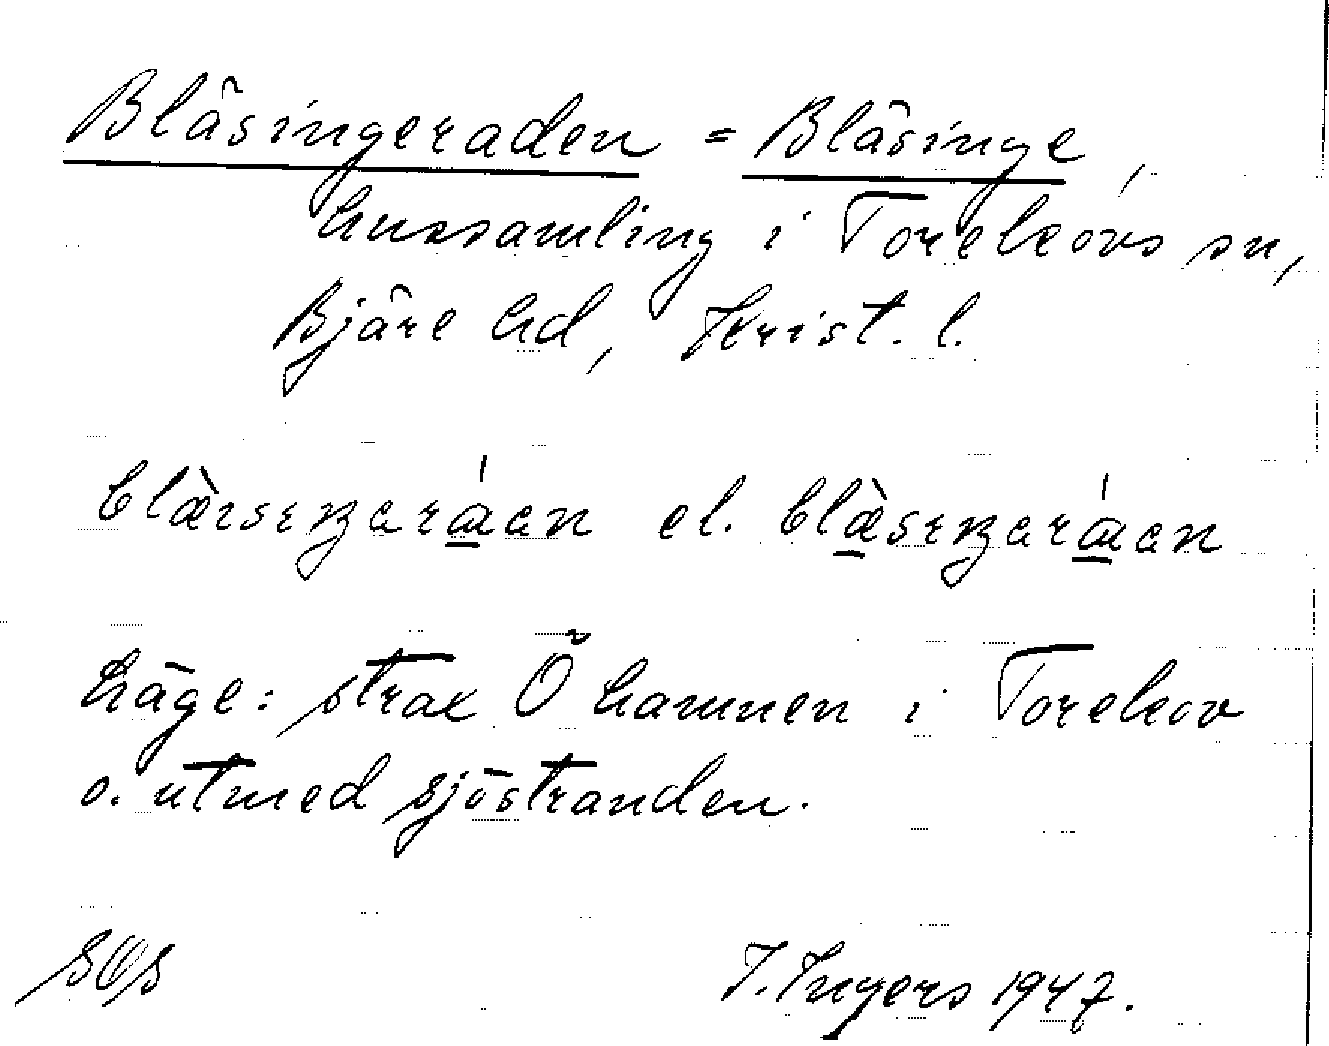 Blåsingeraden = Blåsinge,
hussamling i Torekovs sn,
Bjäre hd, Krist. l.
el.
Läge: strax Ö hamnen i Torekov
o. utmed sjöstranden.
I. Ingers 1947.